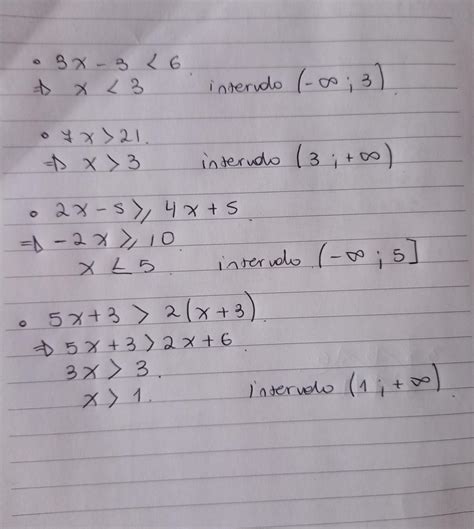 • 3x - 3 < 6
⇒ x < 3 intervalo (-∞ ; 3)
• 7x > 21.
⇒ x > 3 intervalo (3 ; +∞)
• 2x - 5 ⩾ 4x + 5.
⇒ -2x ⩾ 10
x ≤ 5. intervalo (-∞ ; 5]
• 5x + 3 > 2(x + 3)
⇒ 5x + 3 > 2x + 6.
3x > 3.
x > 1. intervalo (1 ; +∞)